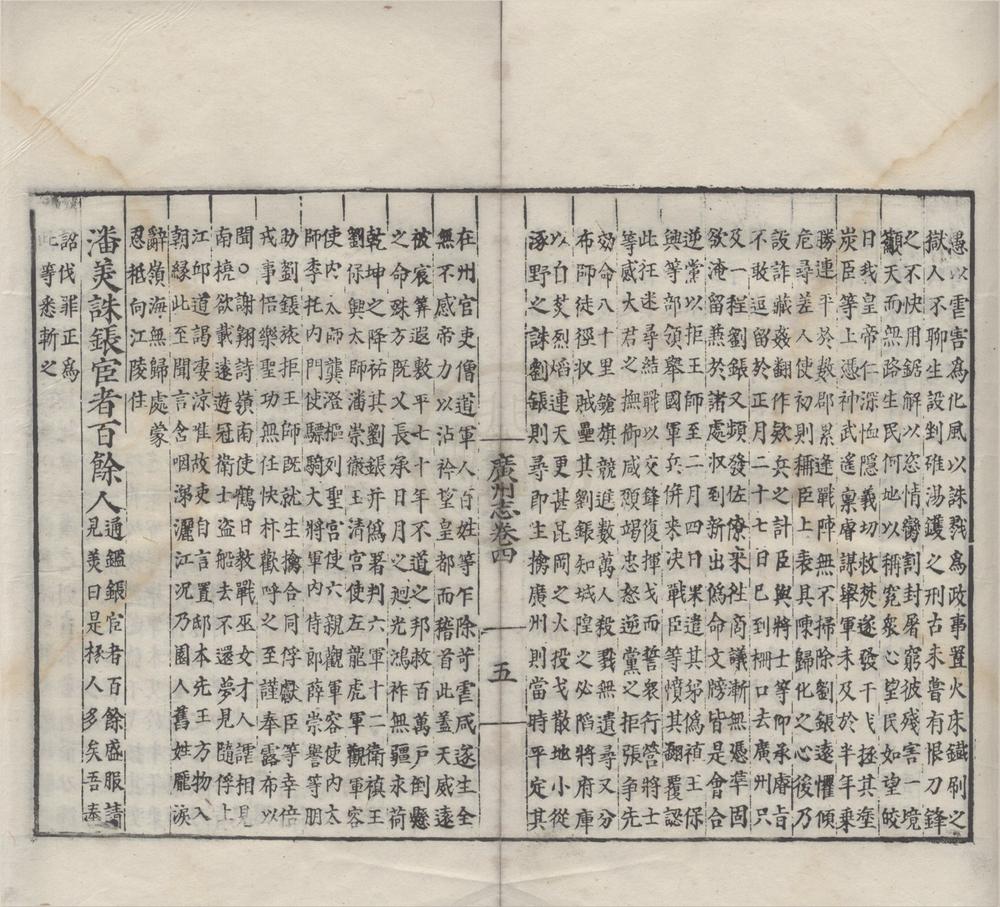 愚以虐害爲化風以誅戮爲政事置火床鐵刷之
獄人不聊生設剉碓湯鑊之刑古未嘗有恨刀鋒
之不快用鋸解以恣情臠割封屠窮彼殘害一境
籲天而無路生民何地以稱寃衆心望民如望皎
日我皇帝仁深恤隱義切救焚遂發干戈拯其塗
炭臣等上憑神武遙稟睿謀舉軍未及於半年乗
勝連平於數郡累逢戰陣無不掃除劉鋹遠懼傾
危尋差人使初則稱臣上表具陳歸化之心後乃
設詐藏姦翻作款兵之計臣與將士等仰承睿旨
不敢逗留於正月二十七日巳到柵口去廣州只
及一程劉鋹又頻發佐僚來社商議漸無憑準固
欲淹留蕪於諸處収到新出僞命文牓皆是會合
逆黨以拒王師至二月四日果遣其弟僞禎王保
興等部領舉國軍兵倂來决戰臣等憤其翻覆認
此狂迷尋結戰以交鋒復揮戈而誓衆行營將士
等威大君之撫御咸願竭忠怒逆黨之拒張争先
効命八十里鎗旗競進數萬人殺戮無遺尋又分
布師徒徑収賊壘其劉鋹知城隍之必䧟將府庫
以白焚烈熖連天更甚昆岡之火投戈散地小從
涿野之誅劉鋹則尋即生擒廣州則當時平定其
廣州志卷四
五
在州官吏僧道軍人百姓等乍除苛虐咸遂生全
無不感帝力以沾衿望皇都而稽首此蓋天威遠
被宸筭遐敷平七十年不道之邦救百萬戸倒懸
之命殊方旣又長承日月之廻光鴻祚無疆永荷
乾坤之降祐其劉鋹并僞署判六軍十二衛禎王
劉保興太師潘崇徹玉清宮使左龍虎軍觀軍容
使内太師龔澄樞列聖宮使六親觀軍容使内太
師李托内門使驃騎大將軍内侍郎薛崇譽等朋
助劉鋹旅拒王師旣就生擒合同俘獻臣等幸倍
戎事悟樂聖功無任快抃歡呼之至謹奉露布以
聞○謝翱詩嶺南使鶴日教戰巫女才人譁相見
南橈欲載遠遊冠衛士盜船去不還夢見隨俘上
江邱道謁凄涼惟故吏自言置邸本先王方物入
朝縁此至聞言含咽涕灑江况乃園人舊姓龎涙
辭嶺海無歸處蒙
忍袛向江陵住
潘美誅鋹宦者百餘人通鑑鋹宦者百餘盛服請
見美曰是㭒人多矣吾奉
詔伐罪正爲
此等悉斬之